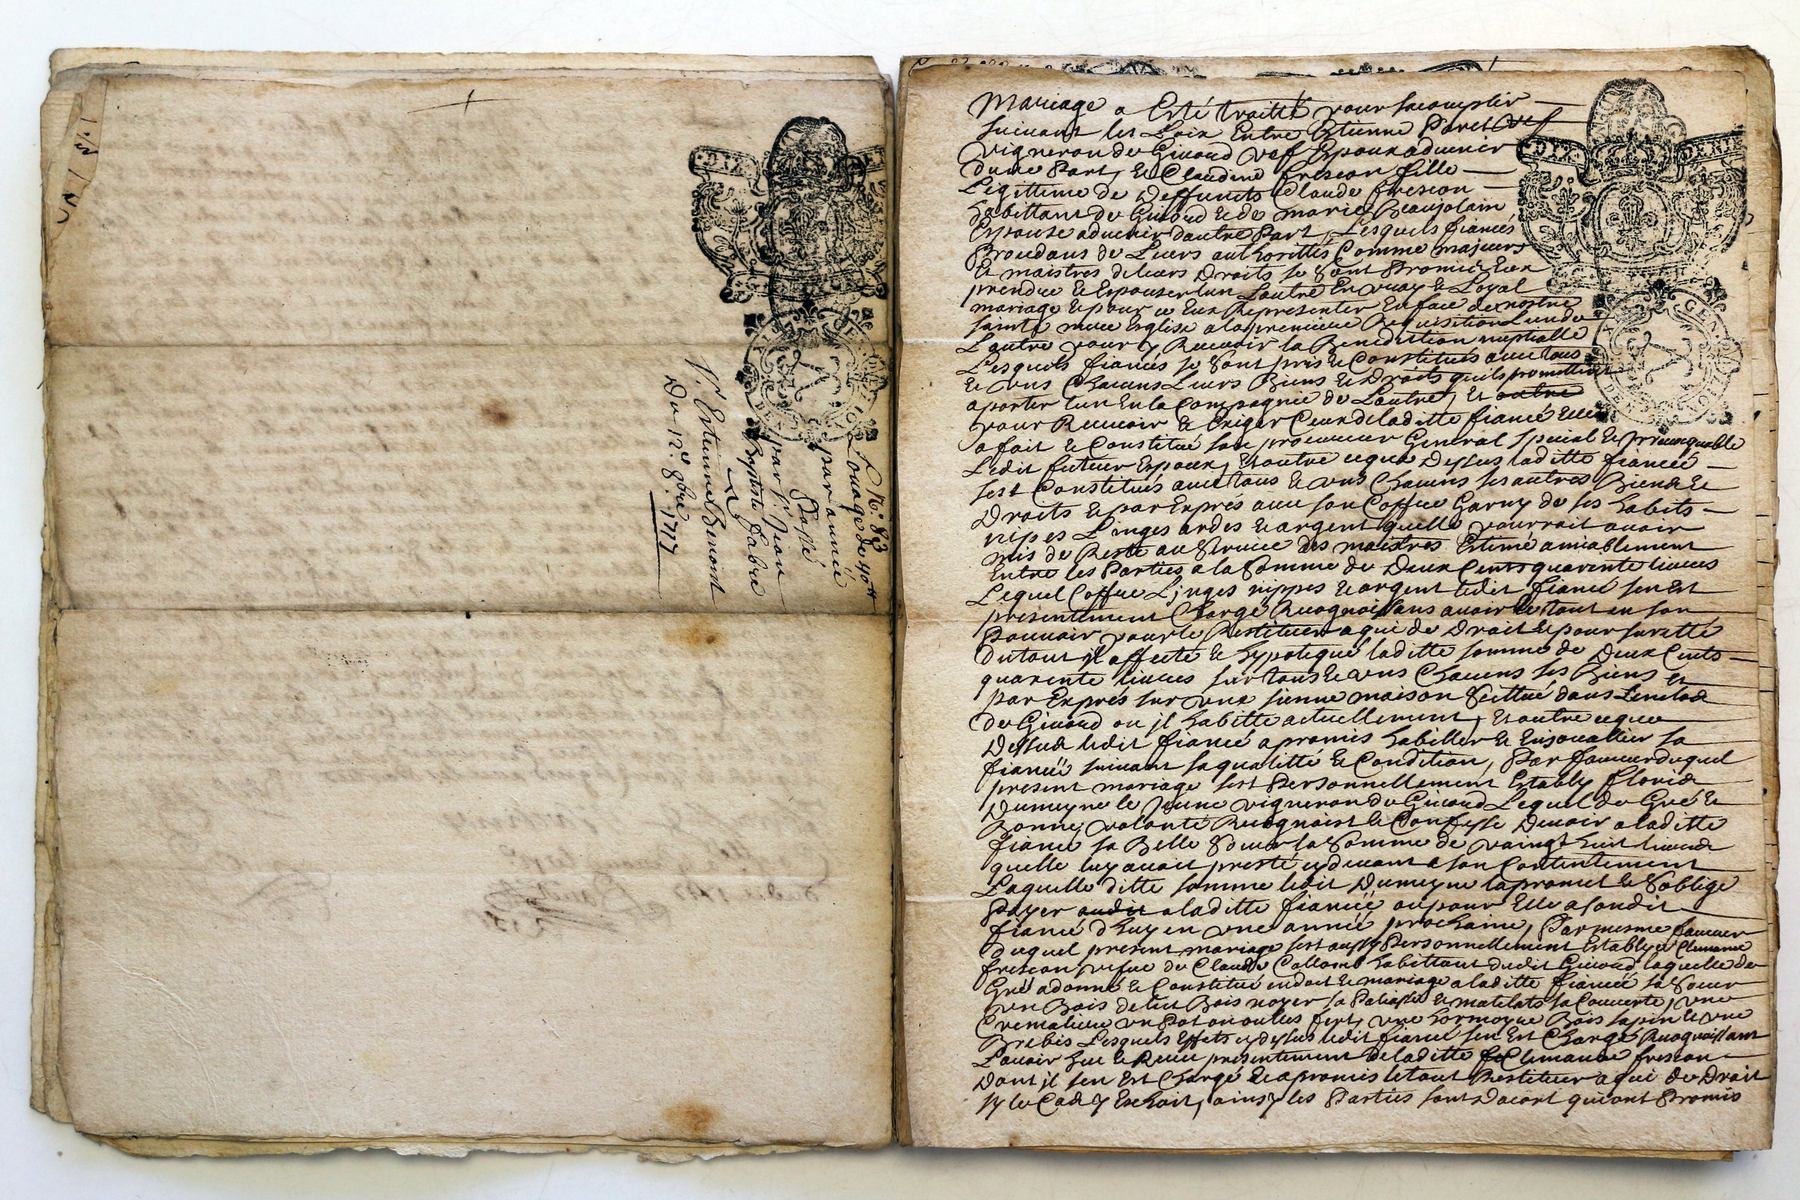 N.º 83
Louage de 40 ᵗᵗ
par année
Passé
par S.ʳ Jean
Baptiste Fabre
A
S.ʳ Estienne Benard
Du 12.ᵉ 8bre 1717
Mariage a Esté traitté pour sacomplir
suivant les Loix Entre Etienne
vigneron de Givord vef Espoux advenir
dune Part, Et Claudine frescon fille
Legittime de Deffunts Claude frescon
habittant de Givord & de marie Beaujolain
Espouse advenir dautre Part, Lesquels fiancés
Procedans de Leurs authorittés Comme majeurs
& maistres de leurs Droits se sont Promis Eux
prendre & Espouser lun Lautre En vray & Loyal
mariage & pour ce Eux Representer En face de nostre
sainte mere Eglise a la premiere Requisition lun de
Lautre pour y Recevoir la Benediction nuptialle
Lesquels fiancés se sont pris & Constitués avec tous
& uns Chacuns Leurs Biens & Droits quils promettent
aporter lun En la Compagnie de Lautre, Et outre
pour Recevoir & Exiger Ceux de laditte fiancé Elle
a fait & Constitué son procureur General special & irrevoquable
Ledit futeur Espoux, Et outre ce que Dessus laditte fiancée
sest Constitués avec tous & uns Chacuns ses autres Biens &
Droits & par Exprés avec son Coffre Garny de ses habits
nipes Linges ardes & argent quelle pourrait avoir
mis de Reste au service des maistres Estimé amiablement
Entre les Parties a la somme de Deux Cents quarente livres
Lequel Coffre Linges nippes & argent ledit fiancé sen Est
presentement Chargé Recognoissans avoir le tout en son
Pouvoir pour le Restituer a qui de Droit & pour suretté
du tout il affecte & hypoteque laditte somme de Deux Cents
quarente livres sur tous & uns Chacuns ses Biens &
par Exprés sur une sienne maison scittué dans Lenclos
de Givord ou il habitte actuellement, Et outre ce que
Dessus ledit fiancé a promis habiller & Enjouallier sa
fiancée suivant sa qualitté & Condition, Par faveur duquel
present mariage sest Personnellement Estably floris
Dumeyne le jeune vigneron de Givord Lequel de Gré &
Bonne volonté Recognoist & Confesse Devoir a laditte
fiancé sa Belle sœur la somme de vaingt huit livres
quelle luy avait presté cy devant a son Contentement
Laquelle ditte somme ledit Dumeyne la promet & soblige
Payer audit a laditte fiancée ou pour Elle a sondit
fiancé dhuy en une année prochaine, Par mesme faveur
duquel present mariage sest aussy Personnellement Establye Clemance
frescon vefve de Claude Collomb habittant dudit Givord laquelle de
Gré a donné & Constitué en dot & mariage a laditte fiancée sa sœur
un Bois de lit Bois noyer sa Paliasse & matelats sa Couverte, une
Cremaliere un Pot une Bois sapin & une
Brebis Lesquels Effets cy dessus ledit fiancé sen Est Chargé Recognoissant
Lavoir heu & Receu presentement de laditte Clemance frescon
Dont il sen Est Chargé & a promis le tout Restituer a qui de Droit
sy le Cas y Eschoit, ainsy les Parties sont Dacort quiont Promis